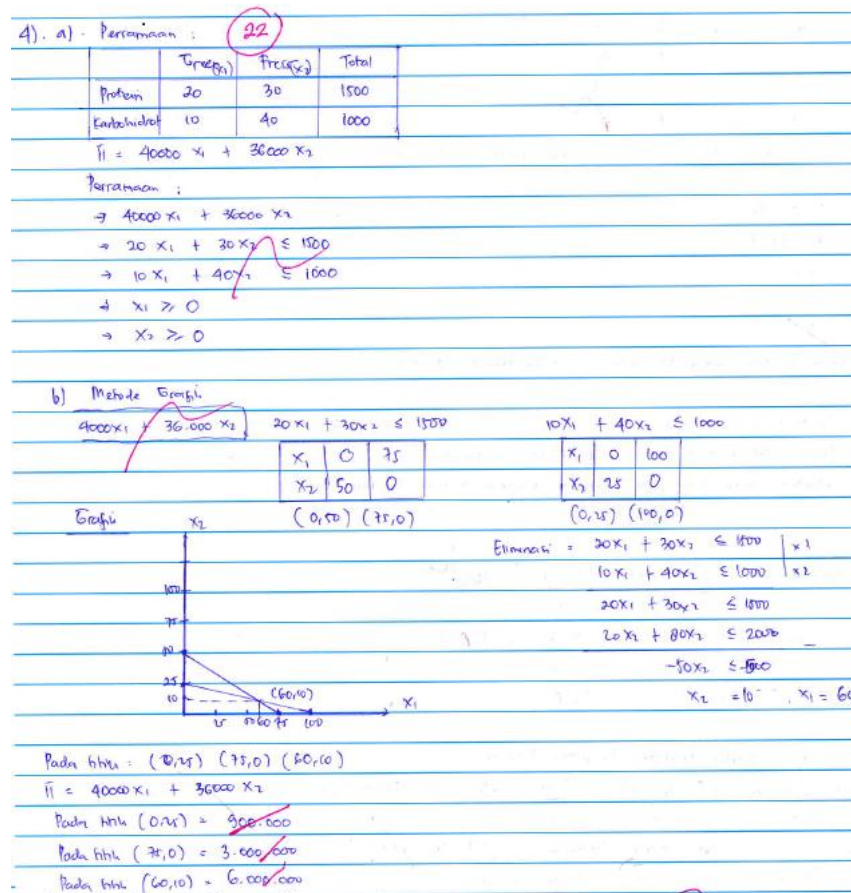 4). a) - Persamaan : 22
Free(x1) Fresc(x2) Total
Protein 20 30 1500
Karbohidrat 10 40 1000
π = 40000 x1 + 36000 x2
Persamaan :
→ 40000 x1 + 36000 x2
→ 20 x1 + 30 x2 ≤ 1500
→ 10 x1 + 40 x2 ≤ 1000
→ x1 ≥ 0
→ x2 ≥ 0
b) Metode Grafik
4000x1 + 36.000 x2 20 x1 + 30x2 ≤ 1500 10x1 + 40x2 ≤ 1000
x1 0 75 x1 0 100
x2 50 0 x2 25 0
(0,50) (75,0) (0,25) (100,0)
Grafik x2
Eliminasi = 20x1 + 30x2 ≤ 1500 | x1
10x1 + 40x2 ≤ 1000 | x2
20x1 + 30x2 ≤ 1500
20x2 + 80x2 ≤ 2000 -
-50x2 ≤ -500
x2 = 10 , x1 = 60
100
75
50
25
10
(60,10) x1
25 50 60 75 100
Pada titik = (0,25) (75,0) (60,10)
π = 40000x1 + 36000 x2
Pada titik (0,25) = 900.000
Pada titik (75,0) = 3.000.000
Pada titik (60,10) = 6.000.000